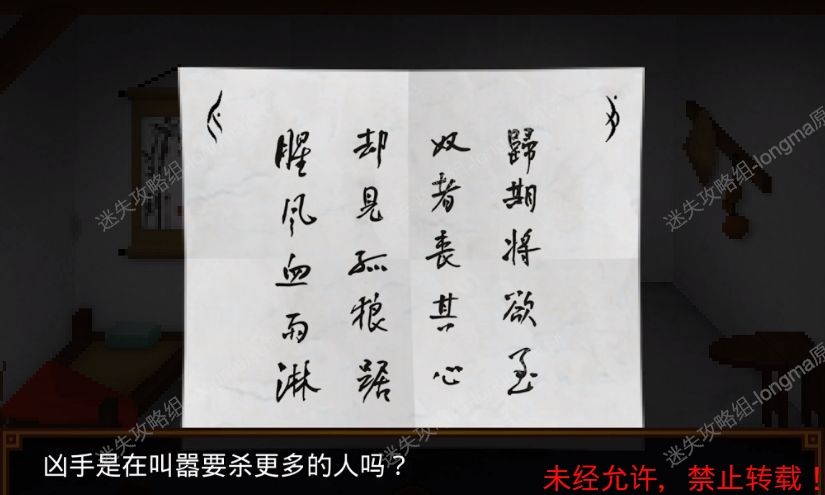 歸期将欲至
奴者喪其心
却見孤狼踞
腥风血雨淋
迷失攻略组-longma原
迷失攻略组-longma原
迷失攻略组-longma原
迷失攻略组-longma原
凶手是在叫嚣要杀更多的人吗？
未经允许，禁止转载！